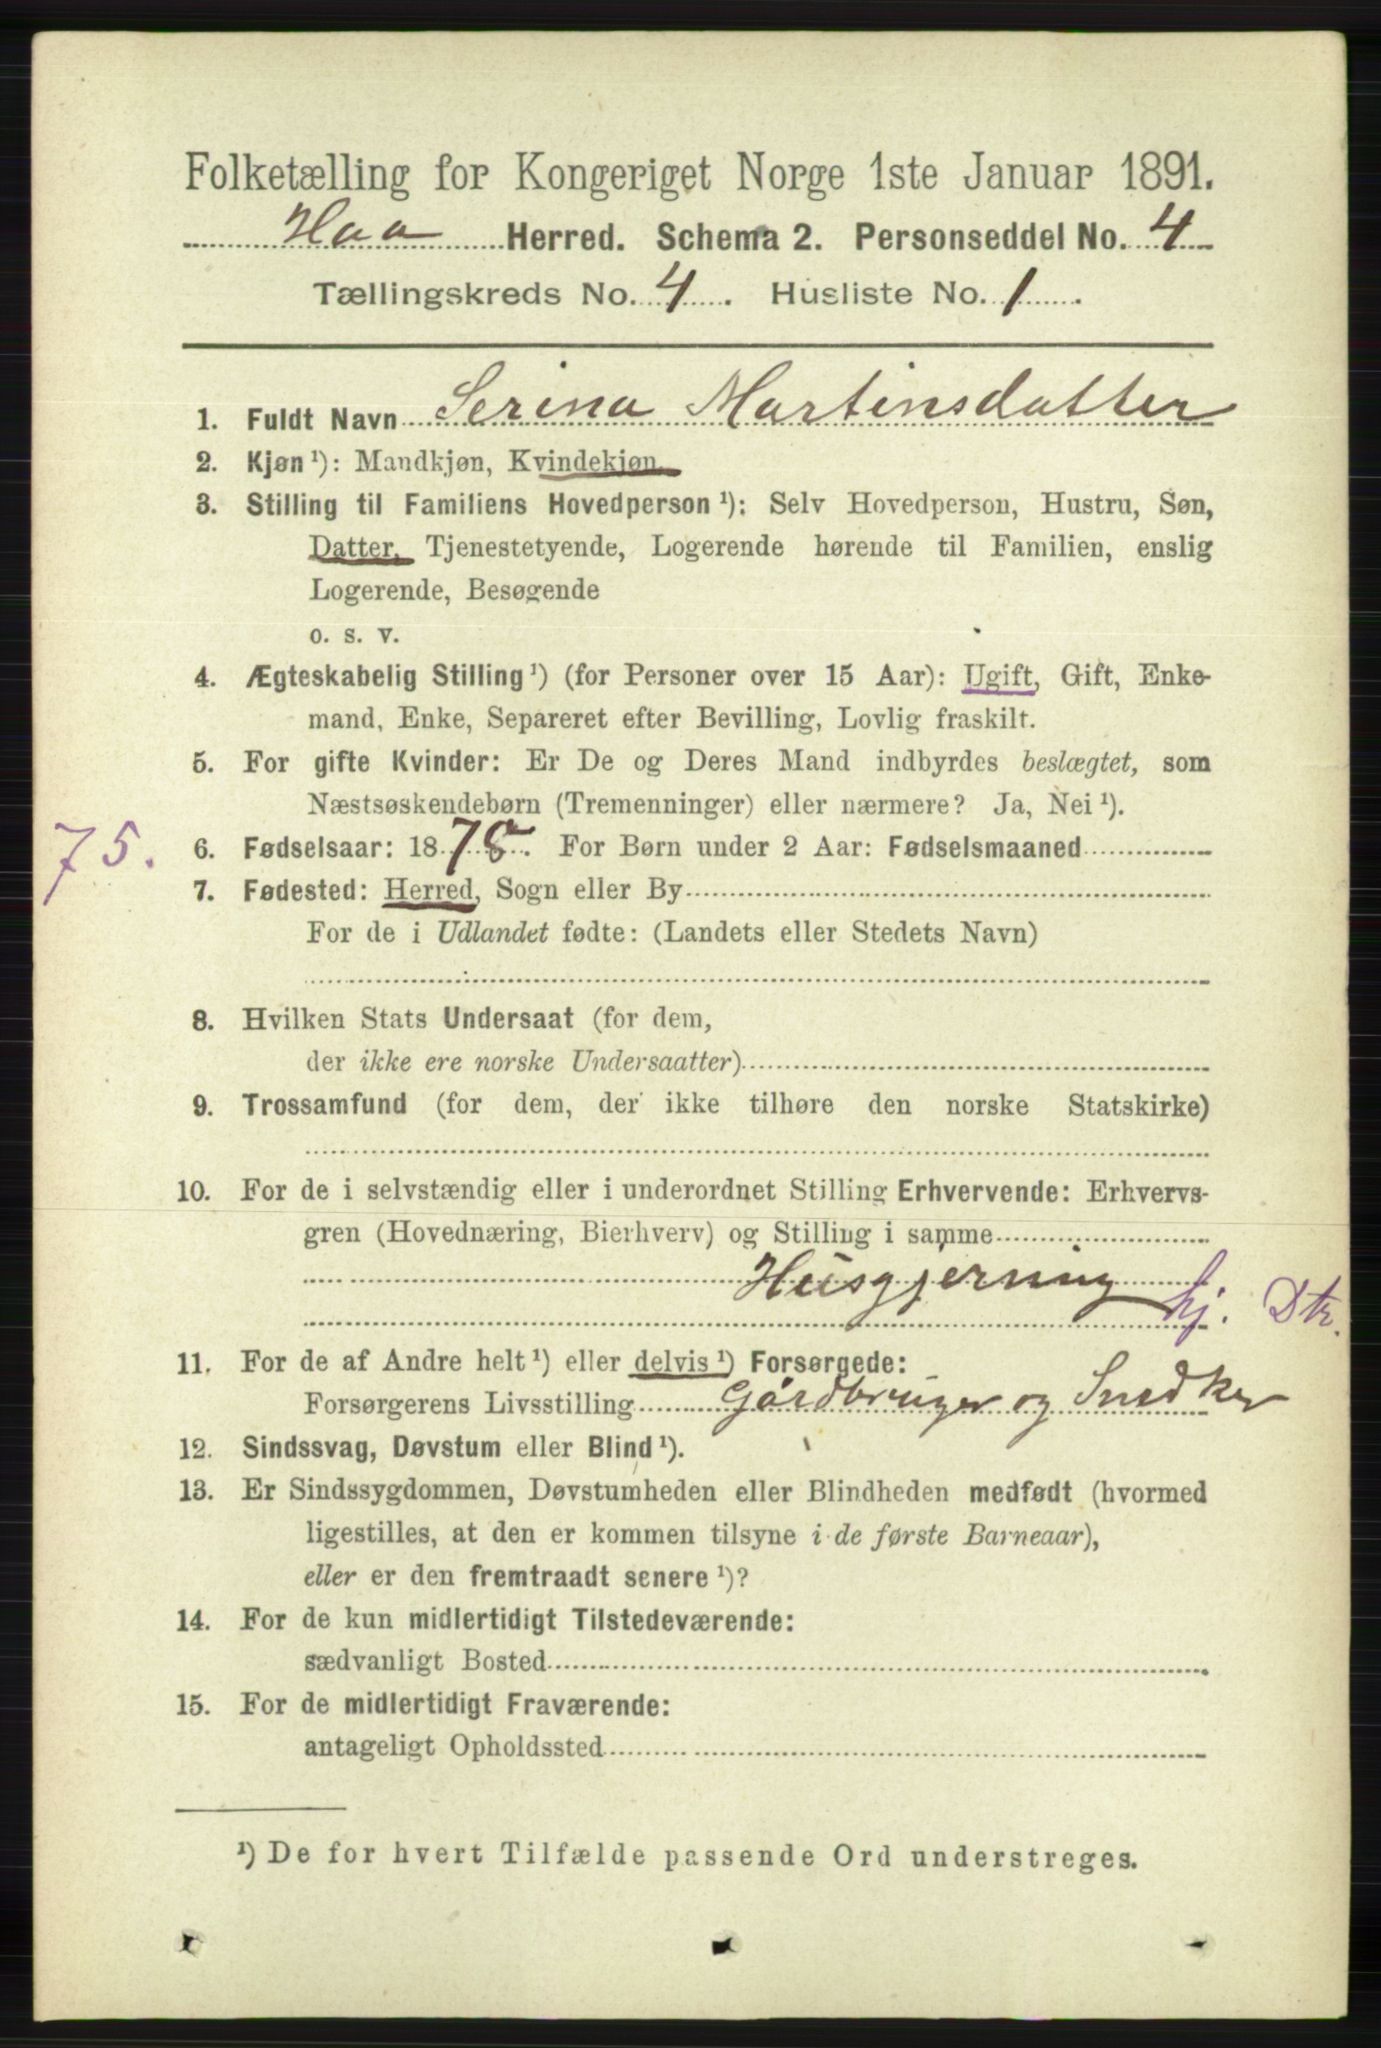 Folketælling for Kongeriget Norge 1ste Januar 1891.
Haa Herred. Schema 2. Personseddel No. 4
Tællingskreds No. 4. Husliste No. 1.
1. Fuldt Navn Serina Martinsdatter
2. Kjøn ¹): Mandkjøn, Kvindekjøn.
3. Stilling til Familiens Hovedperson ¹): Selv Hovedperson, Hustru, Søn,
Datter, Tjenestetyende, Logerende hørende til Familien, enslig
Logerende, Besøgende
o. s. v.
4. Ægteskabelig Stilling ¹) (for Personer over 15 Aar): Ugift, Gift, Enke-
mand, Enke, Separeret efter Bevilling, Lovlig fraskilt.
5. For gifte Kvinder: Er De og Deres Mand indbyrdes beslægtet, som
Næstsøskendebørn (Tremenninger) eller nærmere? Ja, Nei ¹).
75. 6. Fødselsaar: 18 . For Børn under 2 Aar: Fødselsmaaned
7. Fødested: Herred, Sogn eller By
For de i Udlandet fødte: (Landets eller Stedets Navn)
8. Hvilken Stats Undersaat (for dem,
der ikke ere norske Undersaatter)
9. Trossamfund (for dem, der ikke tilhøre den norske Statskirke)
10. For de i selvstændig eller i underordnet Stilling Erhvervende: Erhvervs-
gren (Hovednæring, Bierhverv) og Stilling i samme
Husgjerning hj. Dtr.
11. For de af Andre helt ¹) eller delvis ¹) Forsørgede:
Forsørgerens Livsstilling Gårdbruger og Snedker
12. Sindssvag, Døvstum eller Blind ¹).
13. Er Sindssygdommen, Døvstumheden eller Blindheden medfødt (hvormed
ligestilles, at den er kommen tilsyne i de første Barneaar),
eller er den fremtraadt senere ¹)?
14. For de kun midlertidigt Tilstedeværende:
sædvanligt Bosted
15. For de midlertidigt Fraværende:
antageligt Opholdssted
¹) De for hvert Tilfælde passende Ord understreges.